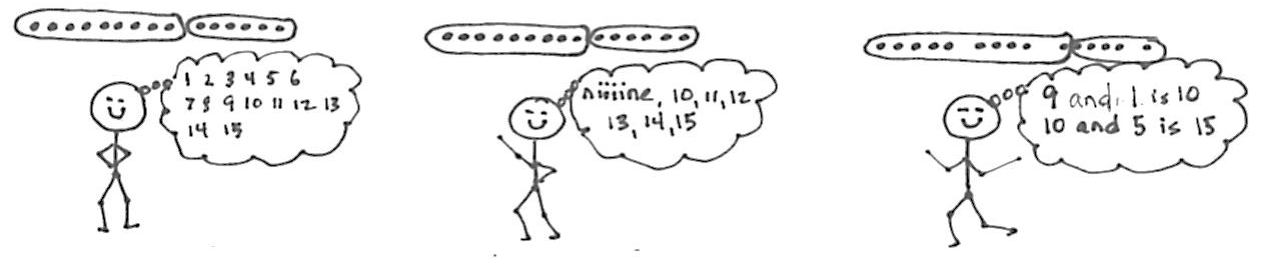 1 2 3 4 5 6
7 8 9 10 11 12 13
14 15
niiiine, 10, 11, 12
13, 14, 15
9 and 1 is 10
10 and 5 is 15